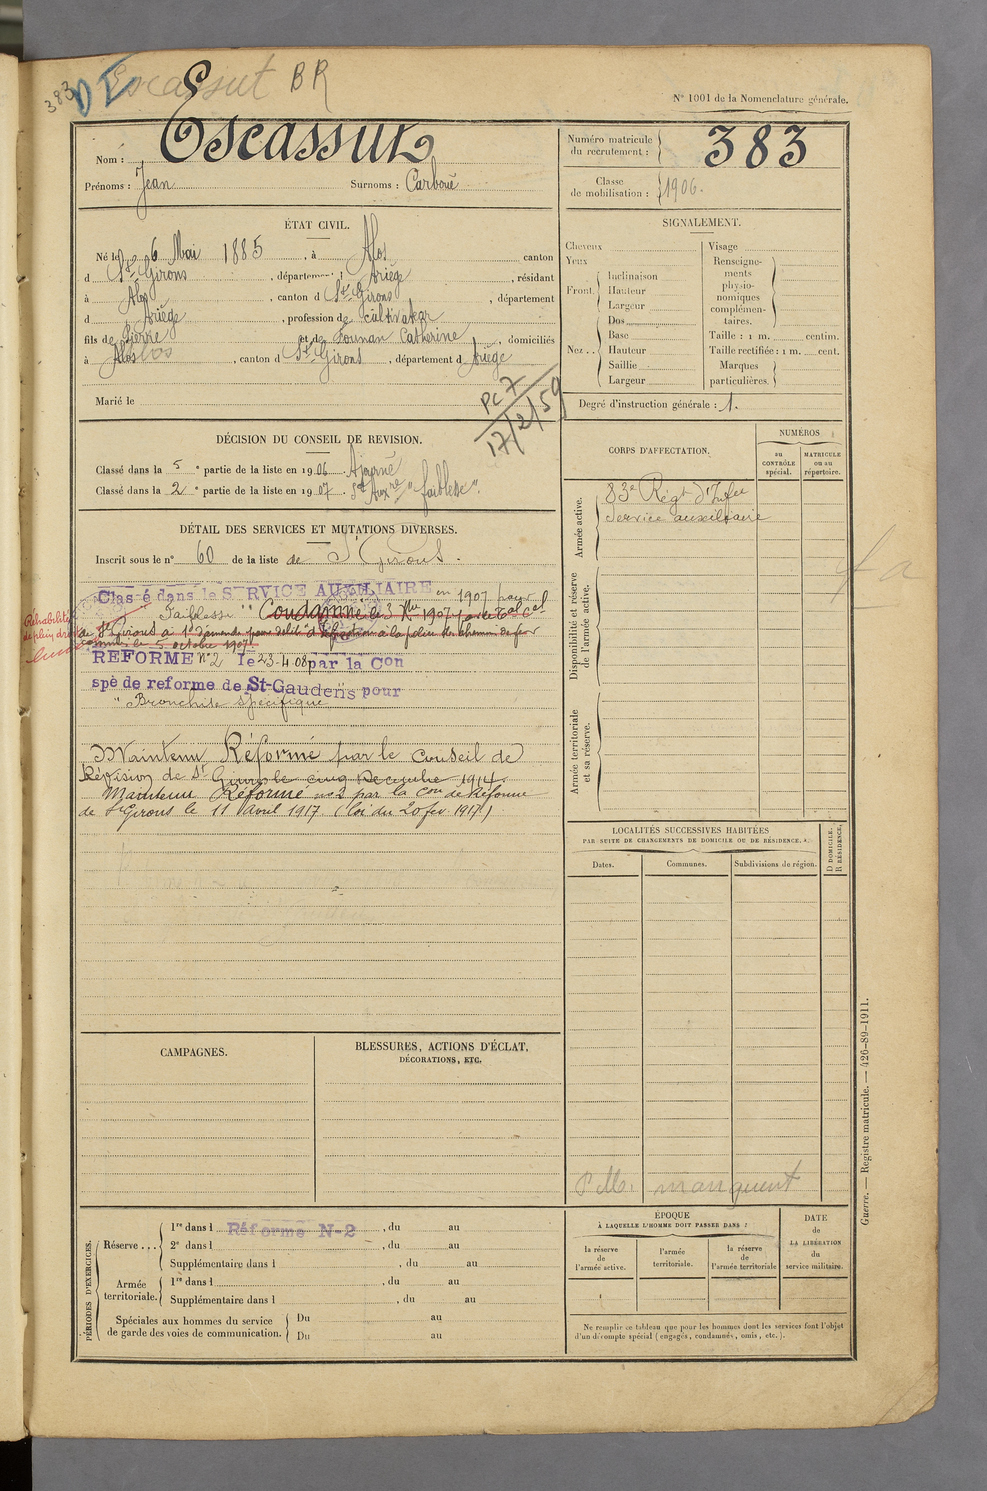 383 DI Escassut BR
N° 1001 de la Nomenclature générale.
Nom : Escassut
Prénoms : Jean Surnoms : Carboué
Numéro matricule du recrutement : 383
Classe de mobilisation : 1906.
ÉTAT CIVIL.
Né le 6 Mai 1885, à Alos canton
d St Girons, département Ariège, résidant
à Alos, canton d St Girons, département
d Ariège, profession de cultivateur
fils de Pierre et de Lounan Catherine, domiciliés
à Alos, canton d St Girons, département d Ariège
Marié le
PC 7
17/2/59
SIGNALEMENT.
Cheveux
Yeux
Front. Inclinaison
Hauteur
Largeur
Nez .. Dos
Base
Hauteur
Saillie
Largeur
Visage
Renseignements physionomiques complémentaires.
Taille : 1 m. centim.
Taille rectifiée : 1 m. cent.
Marques particulières.
Degré d'instruction générale : 1.
DÉCISION DU CONSEIL DE REVISION.
Classé dans la 5e partie de la liste en 1906. Ajourné
Classé dans la 2e partie de la liste en 1907. St Auxre "faiblesse".
DÉTAIL DES SERVICES ET MUTATIONS DIVERSES.
Inscrit sous le n° 60 de la liste de St Girons.
Classé dans le SERVICE AUXILIAIRE en 1907 pour
Faiblesse" Condamné le 3 Xbre 1907 par le
de St Girons à
commis le 5 octobre 1907.
Réhabilité
de plein droit
REFORME N°2 le 23-4-08 par la Con
spè de reforme de St-Gaudens pour
"Bronchite spécifique
Maintenu Réformé par le Conseil de
Révision de St Girons le cinq Décembre 1914.
Maintenu Réformé no 2 par la Con de Réforme
de St Girons le 11 avril 1917. (loi du 20 fev 1917)
CORPS D'AFFECTATION.
NUMÉROS
au CONTRÔLE spécial.
MATRICULE ou au répertoire.
Armée active.
83e Régt d'Infie
Service auxiliaire
Disponibilité et réserve de l'armée active.
Armée territoriale et sa réserve.
LOCALITÉS SUCCESSIVES HABITÉES
PAR SUITE DE CHANGEMENTS DE DOMICILE OU DE RÉSIDENCE.
Dates.
Communes.
Subdivisions de région.
D DOMICILE.
R RÉSIDENCE.
P M. manquent
CAMPAGNES.
BLESSURES, ACTIONS D'ÉCLAT,
DÉCORATIONS, ETC.
PÉRIODES D'EXERCICES.
Réserve ... 1re dans l Réformé N-2, du au
2e dans l, du au
Supplémentaire dans l, du au
Armée territoriale. 1re dans l, du au
Supplémentaire dans l, du au
Spéciales aux hommes du service de garde des voies de communication. Du au
Du au
ÉPOQUE
À LAQUELLE L'HOMME DOIT PASSER DANS :
la réserve de l'armée active.
l'armée territoriale.
la réserve de l'armée territoriale
DATE de LA LIBÉRATION du service militaire.
Ne remplir ce tableau que pour les hommes dont les services font l'objet
d'un décompte spécial (engagés, condamnés, omis, etc.).
Guerre. — Registre matricule. — 426-89-1911.